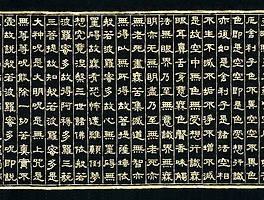 厄舍利子色不異空空不異色
色即是空空即是色受想行識
亦復如是舍利子是諸法空相
不生不滅不垢不淨不增不減
是故空中無色無受想行識無
眼耳鼻舌身意無色聲香味觸
法無眼界乃至無意識界無無
明亦無無明盡乃至無老死亦
無老死盡無苦集滅道無智亦
無得以無所得故菩提薩埵依
般若波羅蜜多故心無罣礙無
罣礙故無有恐怖遠離顛倒夢
想究竟涅槃三世諸佛依般若
波羅蜜多故得阿耨多羅三藐
三菩提故知般若波羅蜜多是
大神呪是大明呪是無上呪是
無等等呪能除一切苦真實不
虛故說般若波羅蜜多呪即說